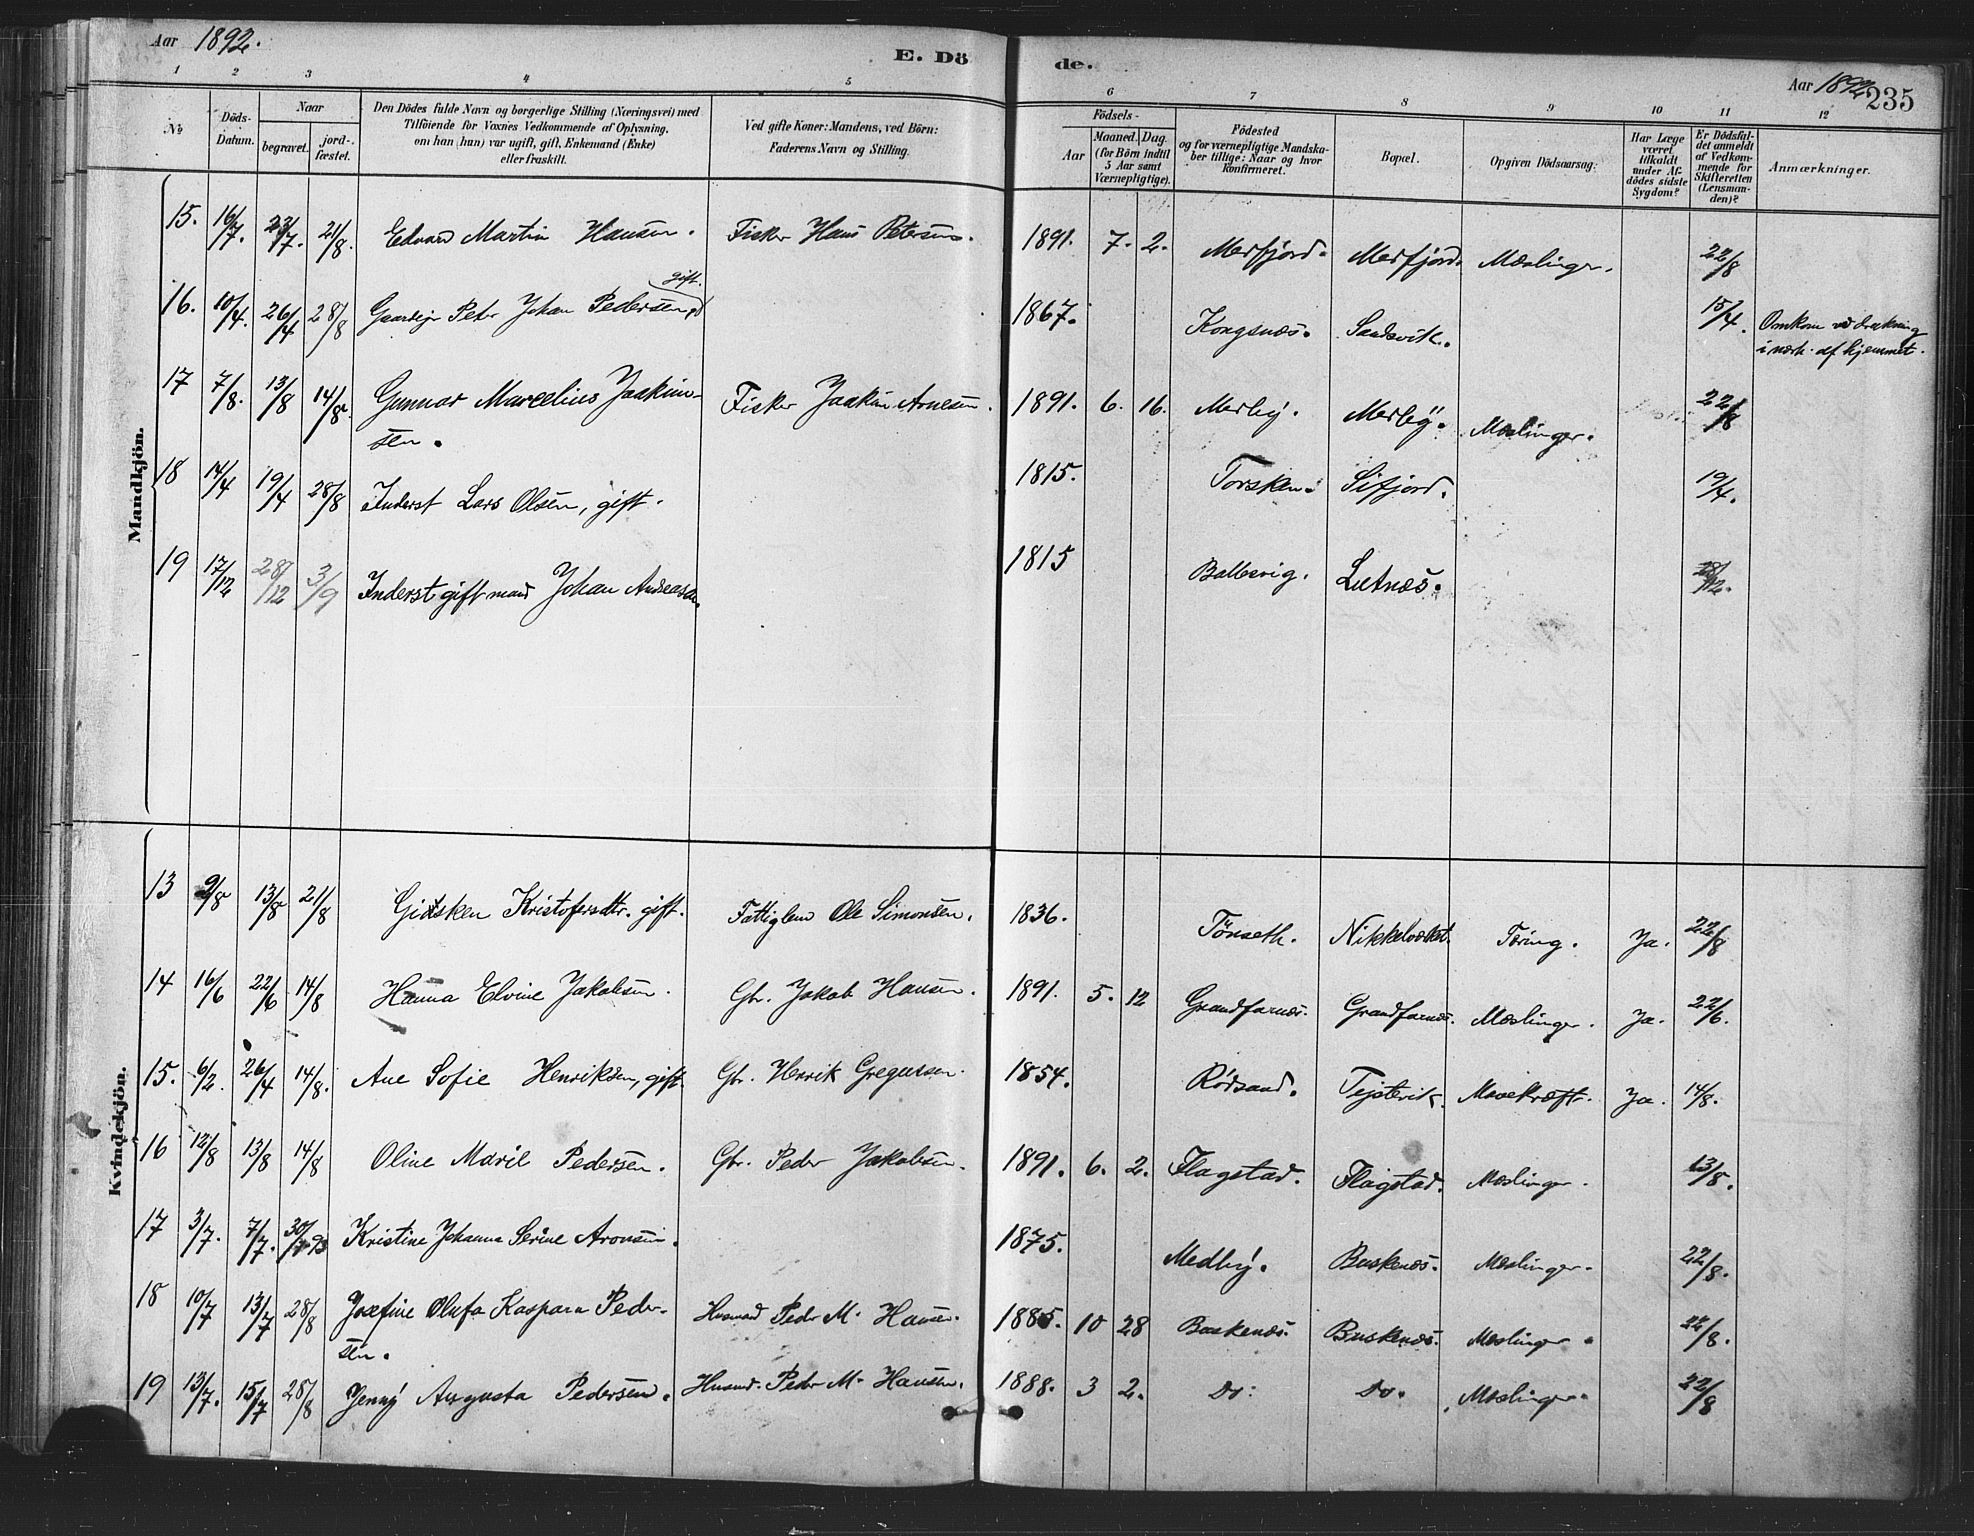 Aar 1892.
E. Dö
de.
Aar 1892
235
1 2 3 4 5 6 7 8 9 10 11 12
No
Döds-Datum.
Naar
begravet.
jord-fæstet.
Den Dödes fulde Navn og borgerlige Stilling (Næringsvei) med
Tilföiende för Voxnes Vedkommende af Oplysning,
om han (hun) var ugift, gift, Enkemand (Enke)
eller fraskilt.
Ved gifte Koner: Mandens, ved Börn:
Faderens Navn og Stilling.
Födsels-
Aar
Maaned. Dag.
(for Börn indtil
5 Aar samt
Værnepligtige).
Födested
og for værnepligtige Mandska-
ber tillige: Naar og hvor
konfirmeret.
Bopæl.
Opgiven Dödsaarsag:
Har Læge
været
tilkaldt
under Af-
dödes sidste
Sygdom?
Er Dödsfal-
det anmeldt
af Vedkom-
mende for
Skifteretten
(Lensman-
den)?
Anmærkninger.
Mandkjön.
15. 16/7. 23/7. 21/8. Edvard Martin Hansen. Fisker Hans Petersen. 1891. 7. 2. Mefjord. Mefjord. Mæslinger. 22/8
gift.
16. 10/4. 26/4 28/8 Gaardejr Peder Johan Pedersen 1867. Kongsnæs. Sandsvik. 15/4. Omkom ved drukning
i nærh. af hjemmet.
17 7/8. 13/8 14/8. Gunnar Marcelius Joakim- Fisker Joakim Arnesen. 1891. 6. 16. Medby. Medby. Mæslinger. 22/8
sen.
18 14/4 19/4 28/8 Inderst Lars Olsen, gift. 1815. Torsken. Sifjord. 19/4.
19 17/12 28/12 3/9 Inderst gift mand Johan Andreasen. 1815 Ballesvig. Lutnæs. 28/12.
Kvindekjön.
13 9/8 13/8 21/8 Gidsken Kristofersdtr. gift. Fattiglem Ole Simonsen. 1836. Tönseth. Nikkelværket. Tæring. Ja. 22/8
14 16/6 22/6 14/8 Hanna Elvine Jakobsen. Gbr. Jakob Hansen. 1891. 5. 12 Grandfarnæs. Grandfarnæs. Mæslinger. Ja. 22/6.
15. 6/2. 26/4 14/8. Ane Sofie Henriksen, gift Gbr. Henrik Gregussen. 1854. Rødsand. Tejstevik. Mavekræft. Ja. 14/8.
16 12/8 13/8 14/8 Oline Maril Pedersen. Gbr. Peder Jakobsen. 1891. 6. 2. Flagstad. Flagstad. Mæslinger. 13/8.
17 3/7. 7/7. 30/7 93 Kristine Johanna Serine Aronsen. 1875. Medby. Buskenæs. Mæslinger. 22/8.
18 10/7 13/7 28/8 Josefine Olufa Kaspara Peder- Husmand Peder M. Hansen. 1885. 10 28 Buskenæs. Buskenæs. Mæslinger. 22/8.
sen.
19 13/7. 15/7 28/8 Jenny Augusta Pedersen. Husmd. Peder M. Hansen. 1888. 3 2. Do: Do. Mæslinger. 22/8